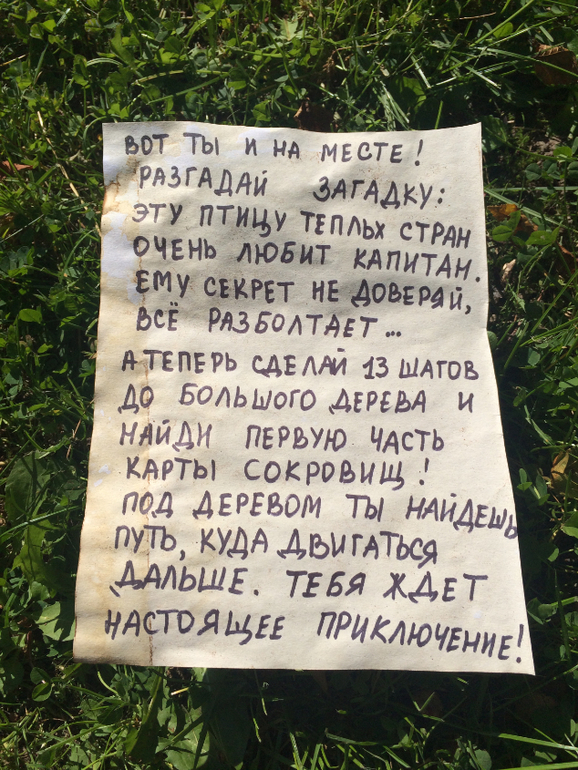 ВОТ ТЫ И НА МЕСТЕ!
РАЗГАДАЙ ЗАГАДКУ:
ЭТУ ПТИЦУ ТЕПЛЫХ СТРАН
ОЧЕНЬ ЛЮБИТ КАПИТАН.
ЕМУ СЕКРЕТ НЕ ДОВЕРЯЙ,
ВСЁ РАЗБОЛТАЕТ...
А ТЕПЕРЬ СДЕЛАЙ 13 ШАГОВ
ДО БОЛЬШОГО ДЕРЕВА И
НАЙДИ ПЕРВУЮ ЧАСТЬ
КАРТЫ СОКРОВИЩ!
ПОД ДЕРЕВОМ ТЫ НАЙДЕШЬ
ПУТЬ, КУДА ДВИГАТЬСЯ
ДАЛЬШЕ. ТЕБЯ ЖДЕТ
НАСТОЯЩЕЕ ПРИКЛЮЧЕНИЕ!